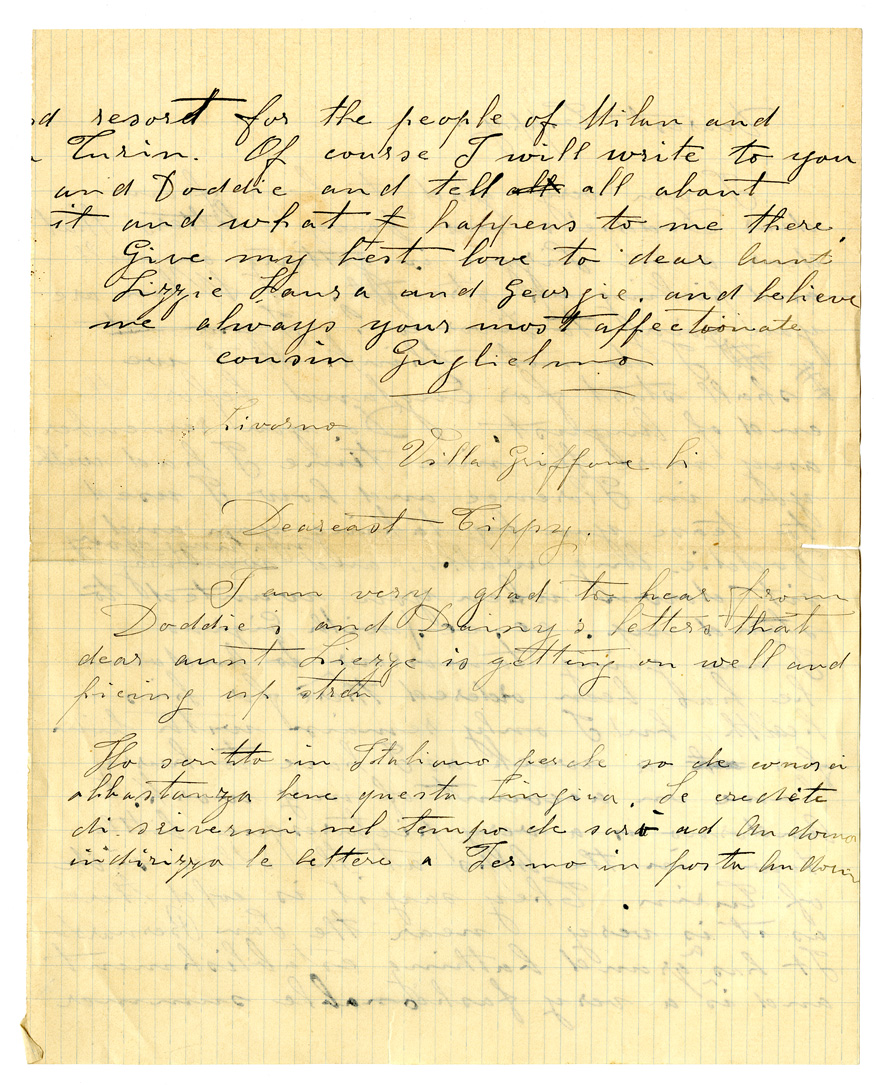 resort for the people of Milan and
Turin. Of course I will write to you
and Doddie and tell all about
it and what happens to me there.
Give my best love to dear Aunt
Lizzie Laura and Georgie. and believe
me always your most affectionate
cousin Guglielmo
Livorno
Villa Griffone li
Deareast Cippy.
I am very glad to hear from
Doddie's and Daisy's letters that
dear aunt Liezze is getting on well and
picing up stren
Ho scritto in Italiano perche so che conosci
abbastanza bene questa Lingua. Se credete
di srivermi nel tempo che sarò ad Andorno
indirizza le lettere a Fermo in posta Andorno